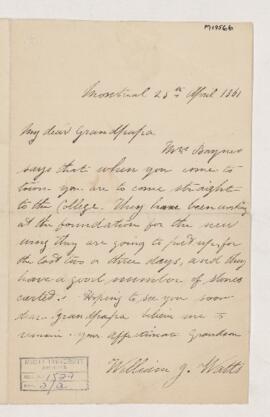 M19566
Montreal 25th April 1861
My dear Grandpapa
Mrs Baynes
says that when you come to
town you are to come straight
to the College. They have been working
at the foundation for the new
wing they are going to put up, for
the last two or three days, and they
have a good number of stones
carted. Hoping to see you soon
dear Grandpapa believe me to
remain your affectionate Grandson
William J. Watts
McGILL UNIVERSITY
ARCHIVES
ACC. NO. 1527
REF. 2/2